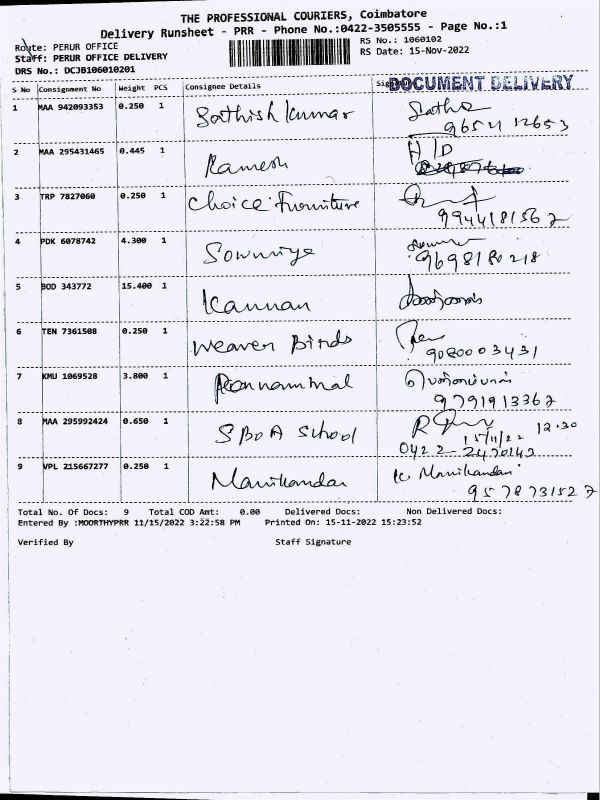 THE PROFESSIONAL COURIERS, Coimbatore
Delivery Runsheet - PRR - Phone No.:0422-3505555 - Page No.:1
Route: PERUR OFFICE
RS No.: 1060102
Staff: PERUR OFFICE DELIVERY
RS Date: 15-Nov-2022
DRS No.: DCJB106010201
DOCUMENT DELIVERY
S No Consignment No Weight PCS Consignee Details
1 MAA 942093353 0.250 1 Sathish kumar
2 MAA 295431465 0.445 1 Ramesh H/D
3 TRP 7827060 0.250 1 Choice Furniture
9944181567
4 PDK 6078742 4.300 1 Sowmiya
9698180218
5 BOD 343772 15.400 1 Kannan
6 TEN 7361508 0.250 1 Weaver Birds
9080003431
7 KMU 1069528 3.800 1 Ponnammal
9791913367
8 MAA 295992424 0.650 1 SBOA School
15/11/22 12.30
0422-2470142
9 VPL 215667277 0.250 1 Manikandan K. Manikandan
9578731527
Total No. Of Docs: 9 Total COD Amt: 0.00 Delivered Docs: Non Delivered Docs:
Entered By :MOORTHYPRR 11/15/2022 3:22:58 PM Printed On: 15-11-2022 15:23:52
Verified By Staff Signature